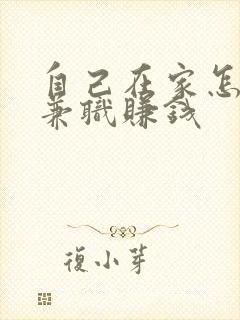 自己在家怎
兼職賺钱
復小芽